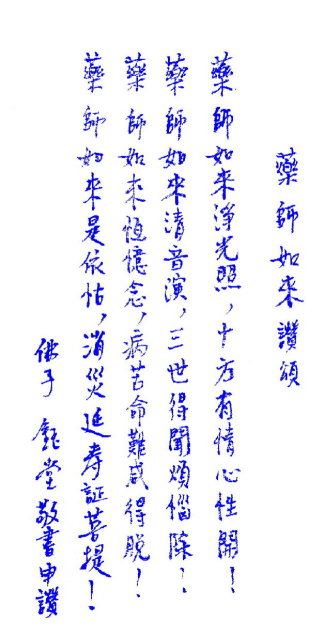 藥師如來讚頌
藥師如來淨光照，十方有情心性開！
藥師如來清音演，三世得聞煩惱除！
藥師如來恆憶念，病苦命難咸得脫！
藥師如來是依怙，消災延寿証菩提！
佛子 堂敬書申讚